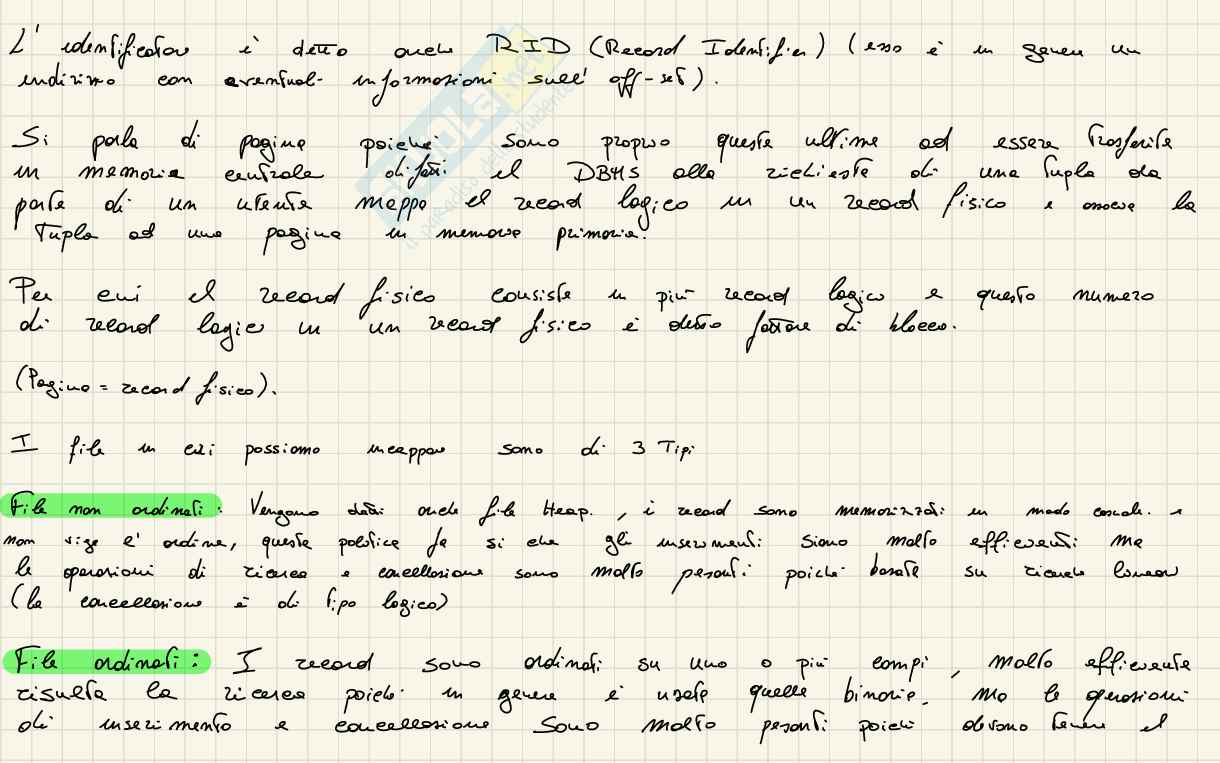 L'identificatore è detto anche RID (Record Identifier) (esso è in genere un
indirizzo con eventuali informazioni sull'off-set).
Si parla di pagine poiché sono proprio queste ultime ad essere trasferite
in memoria centrale difatti il DBMS alla richiesta di una tupla da
parte di un utente mappa il record logico in un record fisico e associa la
tupla ad una pagina in memoria primaria.
Per cui il record fisico consiste in più record logico e questo numero
di record logici in un record fisico è detto fattore di blocco.
(Pagina = record fisico).
I file in cui possiamo incappare sono di 3 Tipi
File non ordinati: Vengono detti anche file Heap., i record sono memorizzati in modo casuale e
non vige l'ordine, questa politica fa sì che gli inserimenti siano molto efficienti ma
le operazioni di ricerca e cancellazione sono molto pesanti poiché basate su ricerche lineari
(la cancellazione è di tipo logico)
File ordinati: I record sono ordinati su uno o più campi, molto efficiente
risulta la ricerca poiché in genere è usata quella binaria, ma le operazioni
di inserimento e cancellazione sono molto pesanti poiché devono tenere il